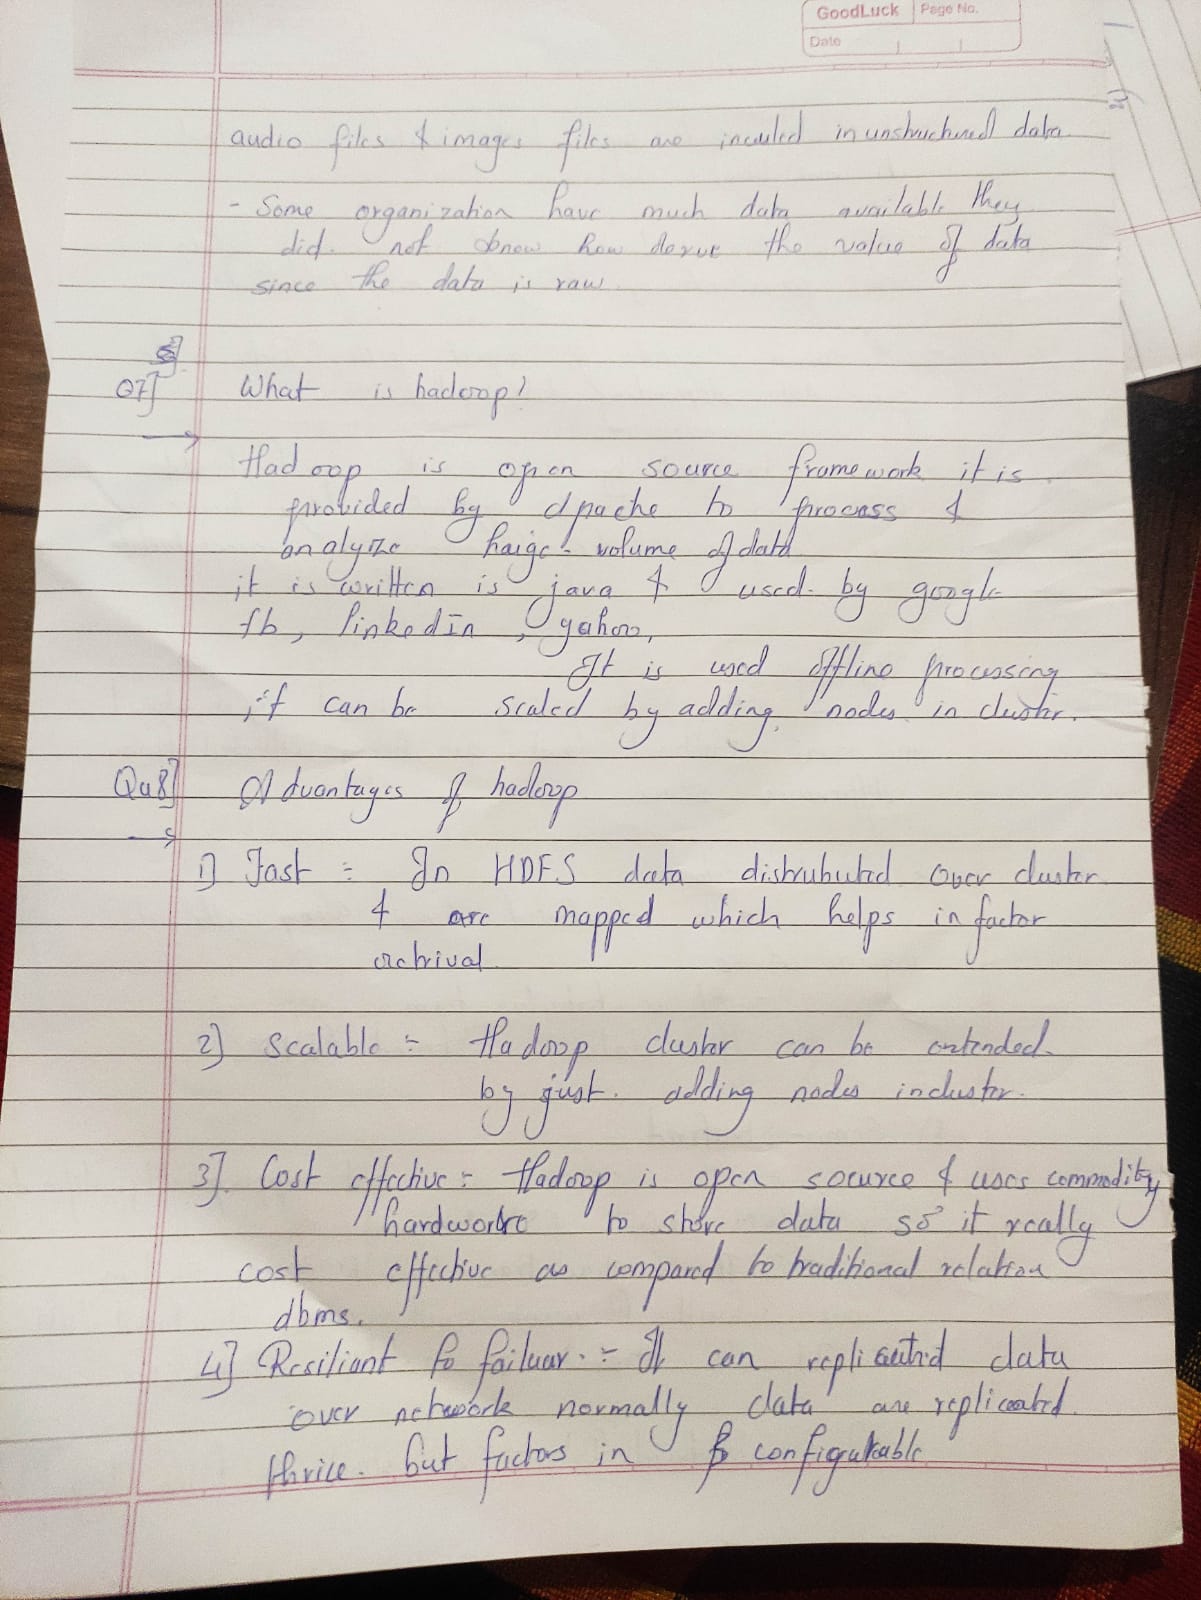 GoodLuck Page No.
Date
audio files & images files are inculed in unstructured data
- Some organization have much data available they
did not know how derve the value of data
since the data is raw.
Q7] What is hadoop?
Hadoop is open source framework it is
provided by Apache to process &
analyze haige volume of data
it is written is java & used by google
fb, linkedin, yahoo,
It is used offline processing
it can be scaled by adding nodes in cluster.
Qu8] Advantages of hadoop
1) Fast := In HDFS data distrubuted over cluster
& are mapped which helps in factor
retrival
2) Scalable := Hadoop cluster can be extended
by just adding nodes in cluster.
3]. Cost effective := Hadoop is open source & uses commodity
hardware to store data so it really
cost effective as compared to traditional relation
dbms.
4] Resiliant to failuar := It can replicated data
over network normally data are replicated
thrice. but factors in configurable